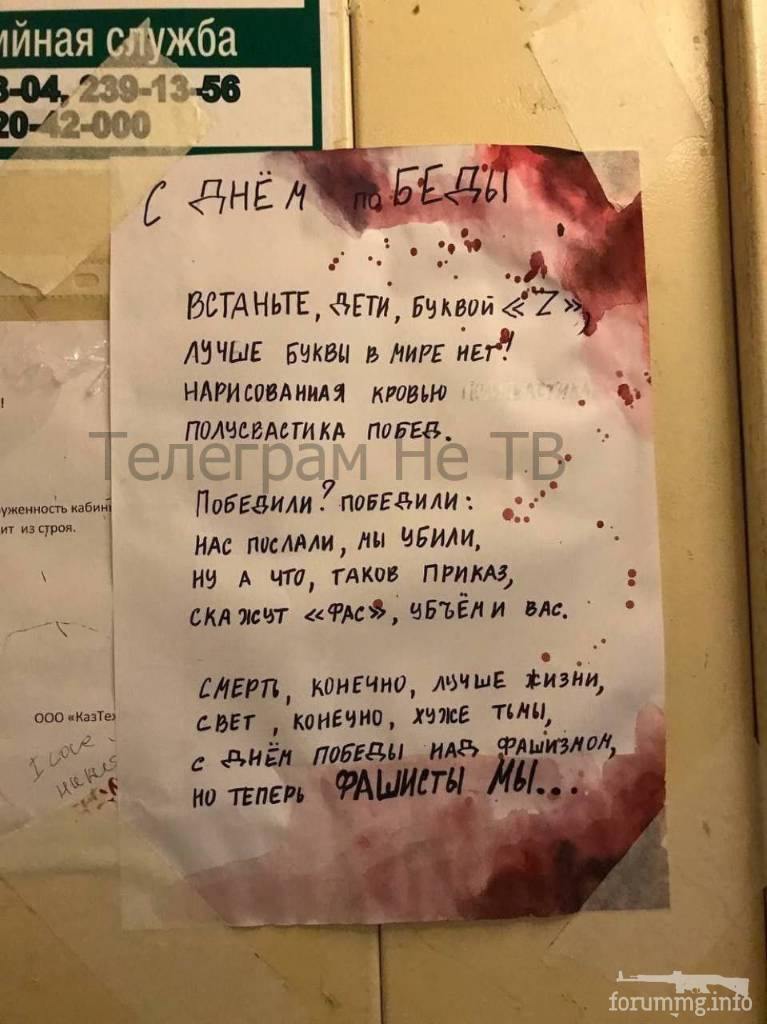 ийная служба
3-04, 239-13-56
20-42-000
С ДНЁМ поБЕДЫ
ВСТАНЬТЕ, ДЕТИ, БУКВОЙ «Z»,
ЛУЧШЕ БУКВЫ В МИРЕ НЕТ!
НАРИСОВАННАЯ КРОВЬЮ
ПОЛУСВАСТИКА ПОБЕД.
Телеграм Не ТВ
ПОБЕДИЛИ? ПОБЕДИЛИ:
НАС ПОСЛАЛИ, МЫ УБИЛИ,
НУ А ЧТО, ТАКОВ ПРИКАЗ,
СКАЖУТ «ФАС», УБЪЁМ И ВАС.
СМЕРТЬ, КОНЕЧНО, ЛУЧШЕ ЖИЗНИ,
СВЕТ, КОНЕЧНО, ХУЖЕ ТЬМЫ,
С ДНЁМ ПОБЕДЫ НАД ФАШИЗМОМ,
НО ТЕПЕРЬ ФАШИСТЫ МЫ...
!
уженность кабин
ит из строя.
ООО «КазТех
I love
forummg.info